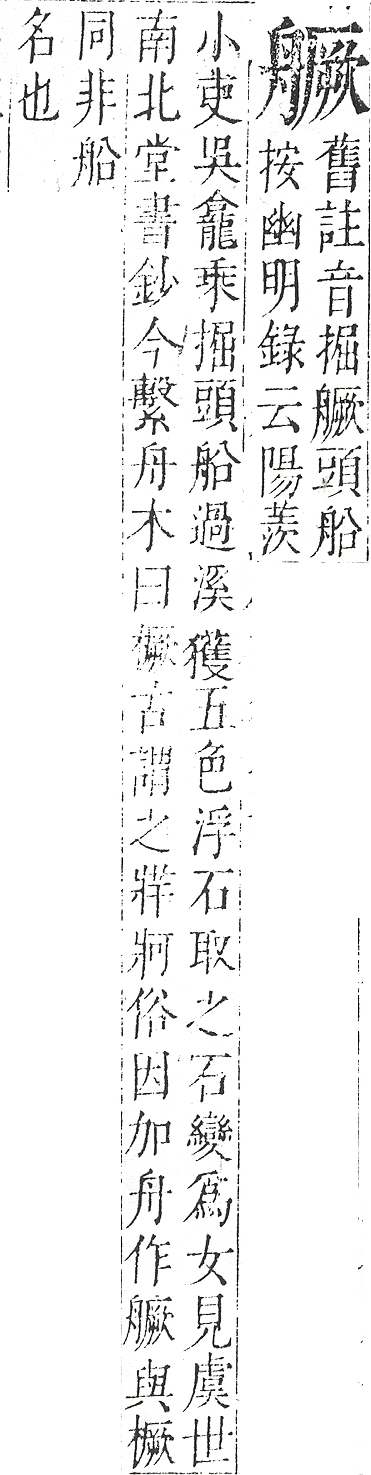 艨舊註音掘艨頭船
按幽明錄云陽羨
小吏吳龕乘掘頭船過溪獲五色浮石取之石變爲女見虞世
南北堂書鈔今繫舟木曰橛古謂之牂牁俗因加舟作𦪘與橛
同非船
名也